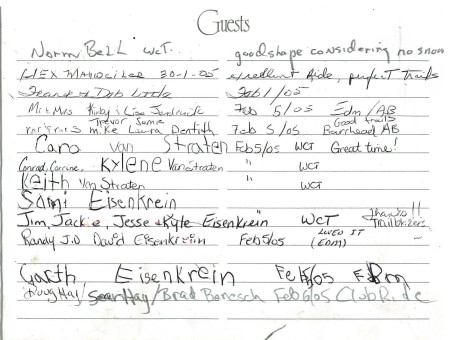 Guests
Norm Bell WCT. good shape considering no snow
30-1-05 excellent Ride, perfect Trails
Frank & Deb Little Feb 1/05
Mr & Mrs Kirby & Lisa Feb 5/05 Edm/AB
Trevor Jamie Good trails
Mike Laura Dentith Feb 5/05 Barrhead AB
Cara van Straten Feb 5/05 WCT Great time!
Conrad, Corrine, Kylene Van Straten " WCT
Keith Van Straten " WCT
Sami Eisenkrein
Jim, Jackie, Jesse & Kyle Eisenkrein WCT Thanks!! Trailblazers
Randy J.D David Eisenkrein Feb 5/05 LOVED IT (EDM) –
Garth Eisenkrein Feb 5/05 EDm
Doug Hay/Sean Hay/Brad Benesch Feb 6/05 Club Ride